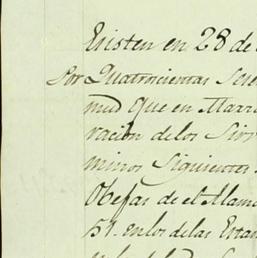 Existen en 28 de
Por Quatrocientas Sese
mil que en Marra
ración de los Sirv
minos Siguientes.
Obejas de el Llama
51. en los de las Estan